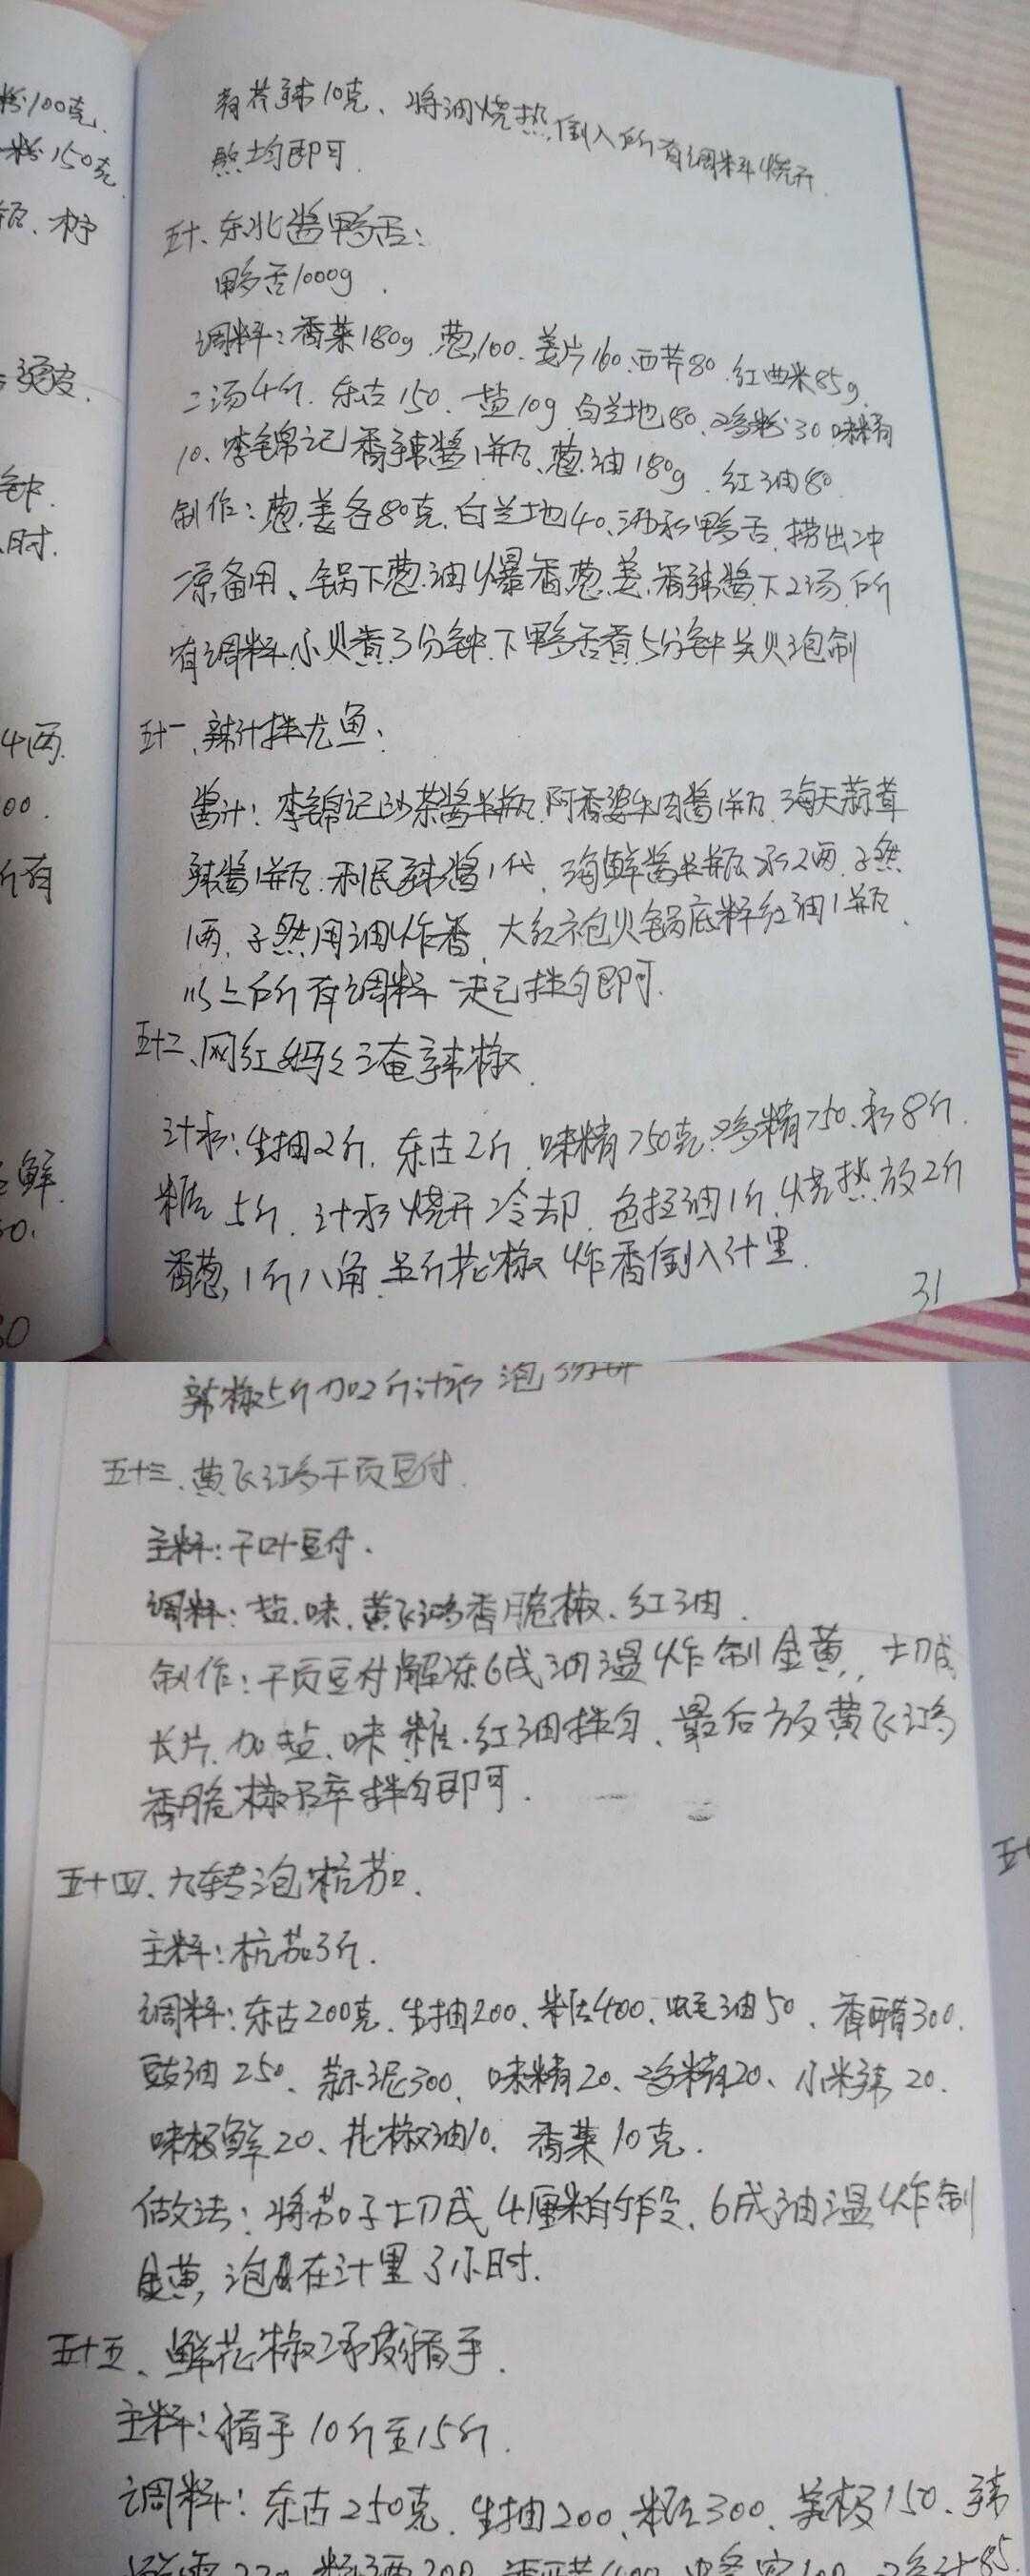 粉100克、
粉150克
4两
00.
有
鲜
30
青芥辣10克、将油烧热,倒入所有调料烧开
熬均即可.
五十、东北酱鸭舌:
鸭舌1000g.
调料:香菜180g.葱,100.姜片160.西芹80.红曲米85g.
二汤4斤.东古150.盐10g.白兰地80.鸡粉30味精
10、李锦记香辣酱1瓶、葱油180g.红油80
制作:葱.姜各80克.白兰地40、沸水鸭舌.捞出冲
凉备用、锅下葱油爆香葱.姜.香辣酱下2汤.所
有调料.小火煮3分钟.下鸭舌煮5分钟关火泡制
五十一、辣汁拌尤鱼:
酱汁:李锦记沙茶酱半瓶.阿香婆牛肉酱1瓶.海天蒜茸
辣酱1瓶.利民辣酱1代.海鲜酱半瓶.水2两.子然
1两.子然用油炸香.大红袍火锅底料红油1瓶.
以上所有调料一起拌匀即可.
五十二、网红妈々淹辣椒.
汁水:生抽2斤.东古2斤.味精750克.鸡精750.水8斤.
糖5斤.汁水烧开冷却.色拉油1斤.烧热放2斤
香葱,1斤八角.五斤花椒炸香倒入汁里.
31
辣椒5斤加2斤汁水泡
五十三、黄飞鸿千页豆付.
主料:千叶豆付.
调料:盐.味.黄飞鸿香脆椒、红油.
制作:千页豆付解冻6成油温炸制金黄,切成
长片.加盐、味.糖.红油拌匀、最后放黄飞鸿
香脆椒碎拌匀即可.
五十四、九转泡杭茄.
主料:杭茄3斤.
调料:东古200克.生抽200、糖400、蚝油50、香醋300.
豉油250、蒜泥300、味精20、鸡精20、小米辣20.
味极鲜20、花椒油10.香菜10克.
做法:将茄子切成4厘米的段、6成油温炸制
金黄,泡在汁里3小时.
五十五、鲜花椒猪手.
主料:猪手10斤至15斤.
调料:东古250克.生抽200、糖300、美极150、辣
五十